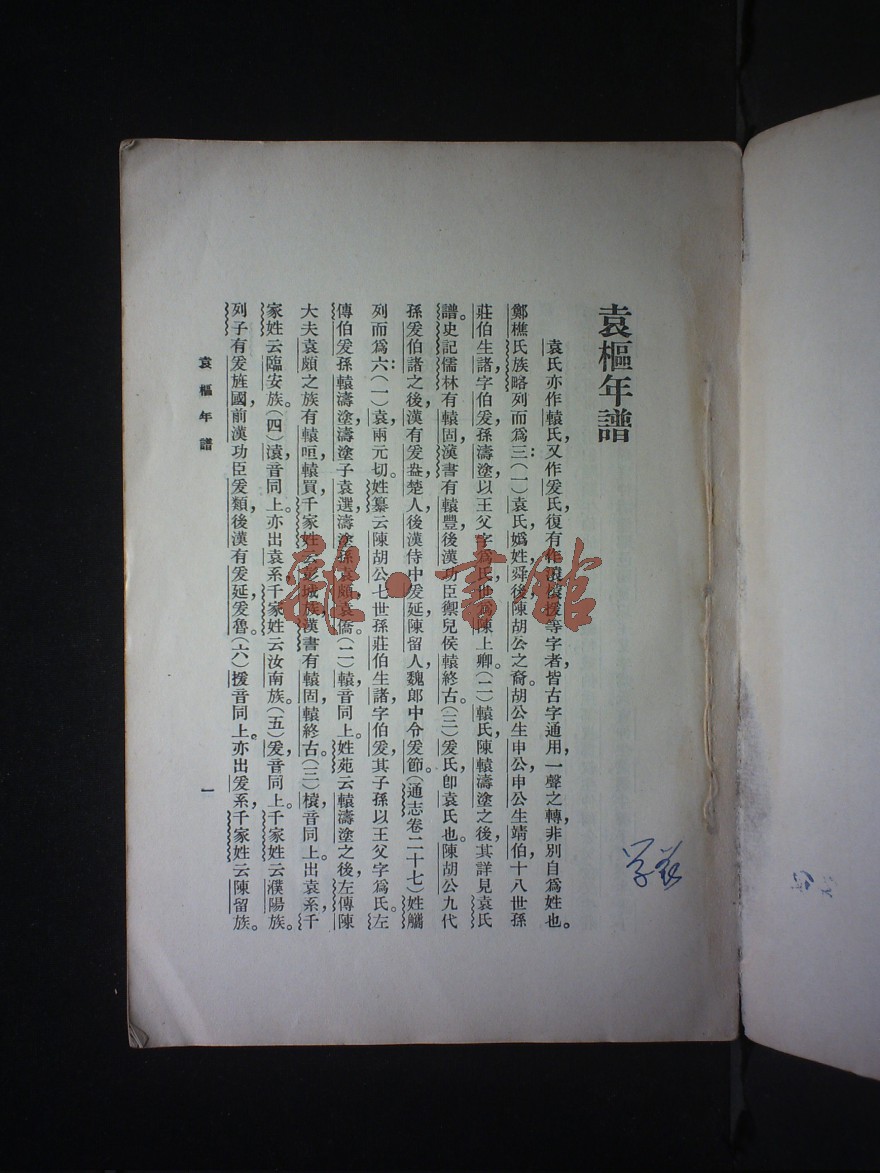 袁樞年譜
袁氏亦作轅氏，又作爰氏復有作溒榬援等字者，皆古字通用，一聲之轉，非別自為姓也。
鄭樵氏族略列而為三：（一）袁氏媯姓，舜後陳胡公之裔。胡公生申公，申公生靖伯十八世孫
莊伯生諸，字伯爰，孫濤塗，以王父字為氏，世為陳上卿。（二）轅氏，陳轅濤塗之後，其詳見袁氏
譜。史記儒林有轅固，漢書有轅豐，後漢功臣禦兒侯轅終古。（三）爰氏卽袁氏也。陳胡公九代
孫爰伯諸之後，漢有爰盎，楚人，後漢侍中爰延，陳留人，魏郎中令爰節。（通志卷二十七）姓觿
列而為六：（一）袁，兩元切。姓纂云陳胡公七世孫莊伯生諸，字伯爰，其子孫以王父字為氏。左
傳伯爰孫轅濤塗，濤塗子袁選，濤塗孫袁頗，袁僑。（二）轅音同上。姓苑云轅濤塗之後，左傳陳
大夫袁頗之族有轅咺，轅買，千家姓云彭城族。漢書有轅固，轅終古。（三）榬音同上。出袁系，千
家姓云臨安族。（四）溒音同上。亦出袁系，千家姓云汝南族。（五）爰，音同上。千家姓云濮陽族。
列子有爰旌國，前漢功臣爰類，後漢有爰延，爰魯。（六）援音同上。亦出爰系，千家姓云陳留族。
袁樞年譜
一
雜·書館